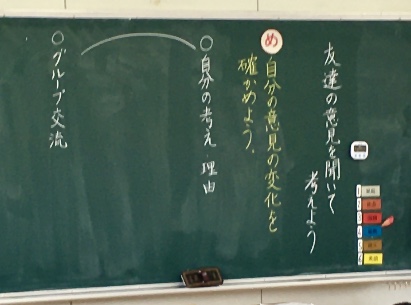 友達の意見を聞いて
考えよう
め
自分の意見の変化を
確かめよう。
○自分の考え・理由
○グループ交流